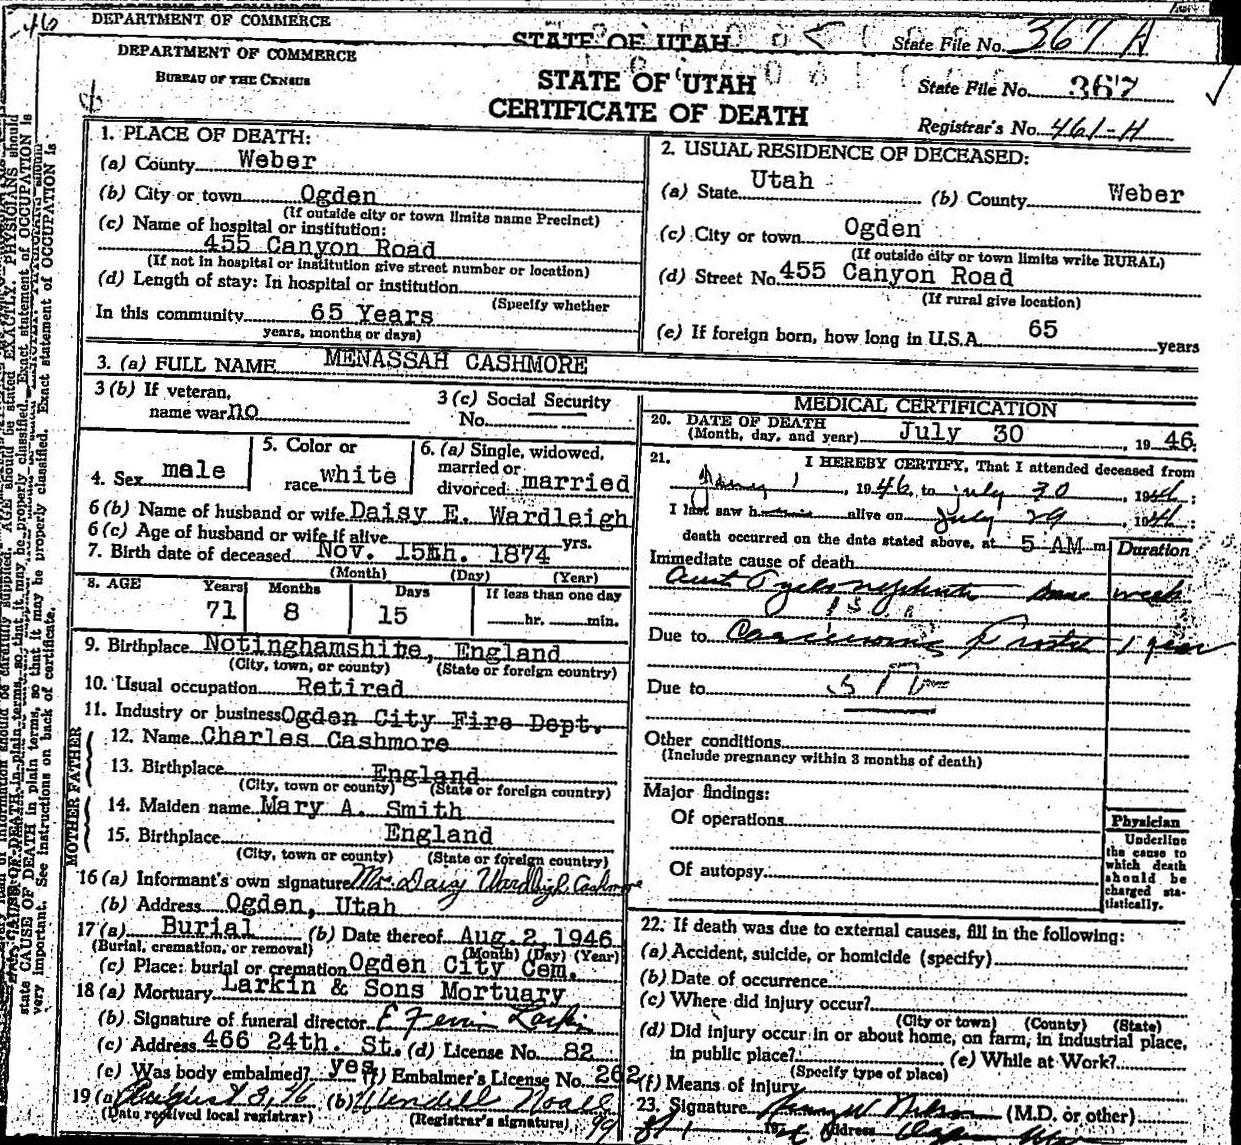 DEPARTMENT OF COMMERCE
STATE OF UTAH
State File No. 367 A
DEPARTMENT OF COMMERCE
BUREAU OF THE CENSUS
STATE OF UTAH
CERTIFICATE OF DEATH
State File No. 367
Registrar's No. 461-H
1. PLACE OF DEATH:
(a) County Weber
(b) City or town Ogden
(If outside city or town limits name Precinct)
(c) Name of hospital or institution:
455 Canyon Road
(If not in hospital or institution give street number or location)
(d) Length of stay: In hospital or institution
(Specify whether
In this community 65 Years
years, months or days)
2. USUAL RESIDENCE OF DECEASED:
(a) State Utah (b) County Weber
(c) City or town Ogden
(If outside city or town limits write RURAL)
(d) Street No. 455 Canyon Road
(If rural give location)
(e) If foreign born, how long in U.S.A. 65 years
3. (a) FULL NAME MENASSAH CASHMORE
3 (b) If veteran,
name war no
3 (c) Social Security
No.
4. Sex male
5. Color or
race white
6. (a) Single, widowed,
married or
divorced married
6 (b) Name of husband or wife Daisy E. Wardleigh
6 (c) Age of husband or wife if alive yrs.
7. Birth date of deceased Nov. 15th. 1874
(Month) (Day) (Year)
8. AGE Years Months Days If less than one day
71 8 15 hr. min.
9. Birthplace Notinghamshite, England
(City, town, or county) (State or foreign country)
10. Usual occupation Retired
11. Industry or business Ogden City Fire Dept.
FATHER
12. Name Charles Cashmore
13. Birthplace England
(City, town or county) (State or foreign country)
MOTHER
14. Maiden name Mary A. Smith
15. Birthplace England
(City, town or county) (State or foreign country)
16 (a) Informant's own signature Mrs. Daisy Wardleigh Cashmore
(b) Address Ogden, Utah
17 (a) Burial (b) Date thereof Aug. 2, 1946
(Burial, cremation, or removal) (Month) (Day) (Year)
(c) Place: burial or cremation Ogden City Cem.
18 (a) Mortuary Larkin & Sons Mortuary
(b) Signature of funeral director Larkin
(c) Address 466 24th. St. (d) License No. 82
(e) Was body embalmed? yes (f) Embalmer's License No. 262
19 (a) August 3, 46 (b) Wendell Noall
(Date received local registrar) (Registrar's signature)
MEDICAL CERTIFICATION
20. DATE OF DEATH
(Month, day, and year) July 30 1946.
21. I HEREBY CERTIFY, That I attended deceased from
1, 1946, to July 30, 1946;
I last saw h alive on July 29, 1946;
death occurred on the date stated above, at 5 AM m.
Duration
Immediate cause of death
week
Due to Carcinoma Prostate 1 year
Due to
Other conditions
(Include pregnancy within 3 months of death)
Major findings:
Of operations
Of autopsy
Physician
Underline
the cause to
which death
should be
charged sta-
tistically.
22. If death was due to external causes, fill in the following:
(a) Accident, suicide, or homicide (specify)
(b) Date of occurrence
(c) Where did injury occur?
(City or town) (County) (State)
(d) Did injury occur in or about home, on farm, in industrial place,
in public place? (e) While at Work?
(Specify type of place)
(f) Means of injury
23. Signature (M.D. or other)
Address